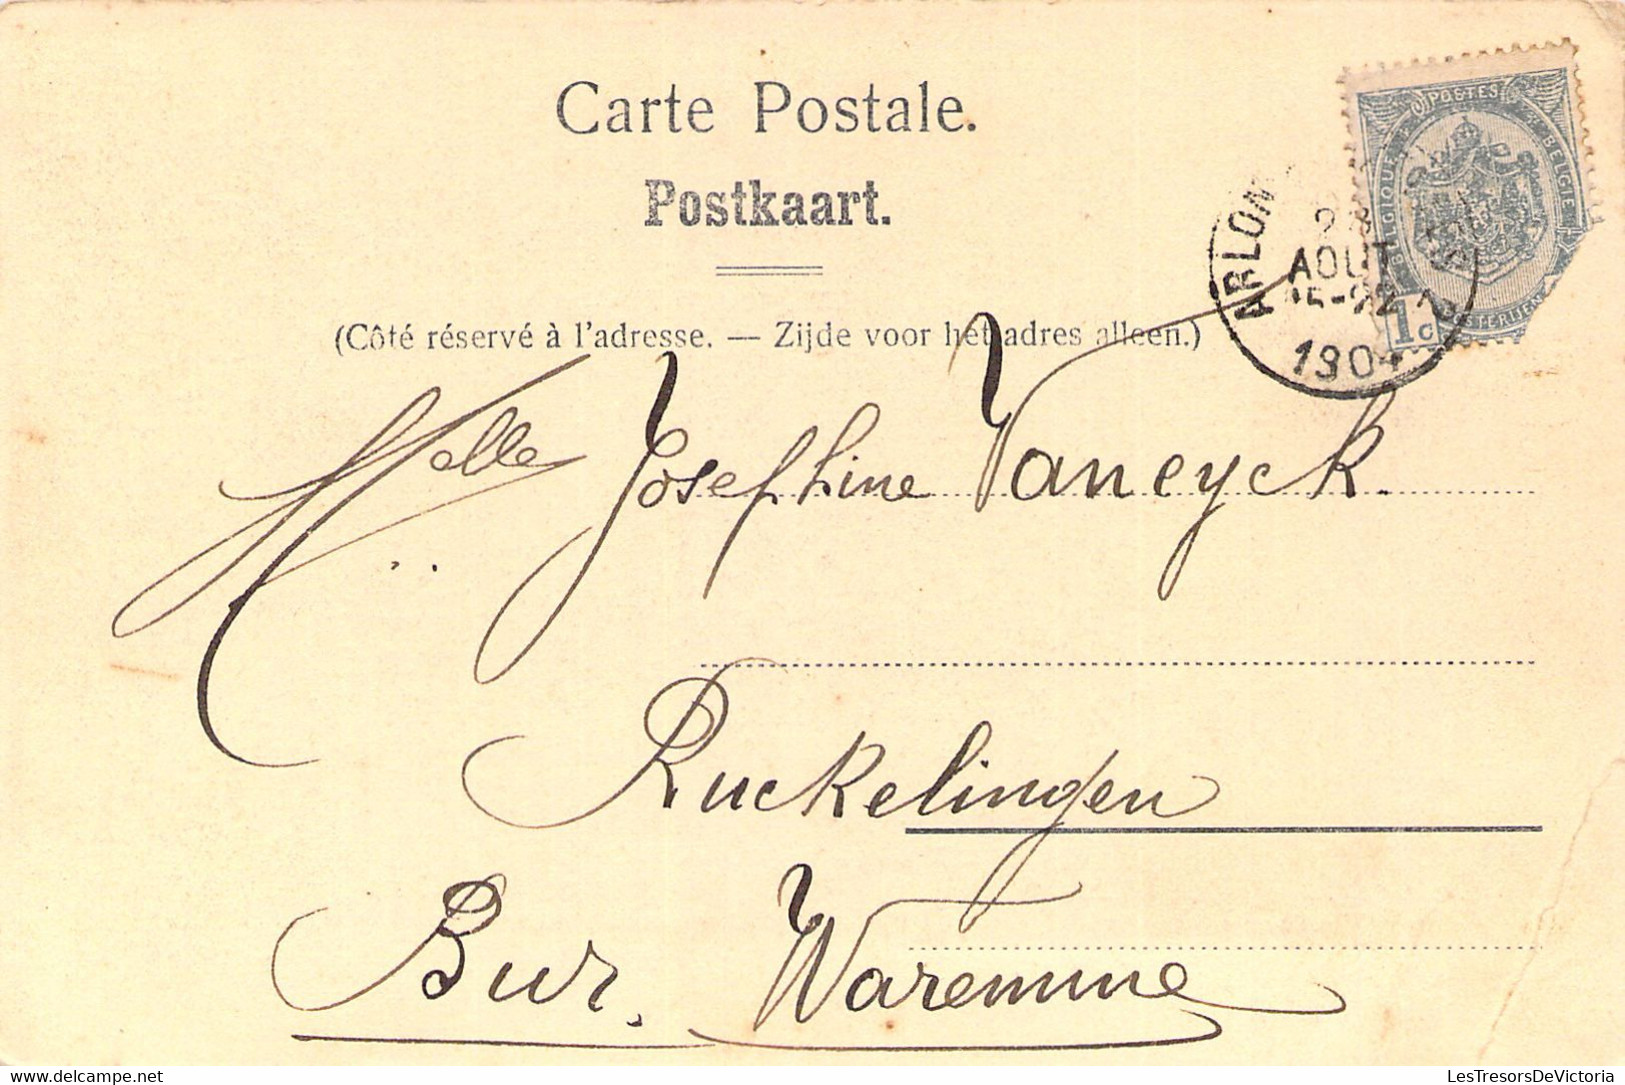 Carte Postale.
Postkaart.
(Côté réservé à l'adresse. — Zijde voor het adres alleen.)
POSTES
BELGIQUE BELGIE
1c
ARLON
AOUT
1904
Melle Josephine Vaneyck.
Ruckelingen
Bur. Waremme
www.delcampe.net
LesTresorsDeVictoria